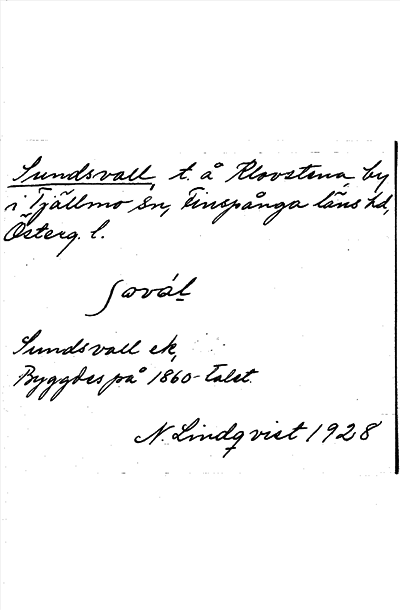 Sundsvall, t. å Klovstena by
i Tjällmo sn, Finspånga läns hd,
Österg. l.
Sundsvall ek,
Byggdes på 1860-talet.
N. Lindqvist 1928